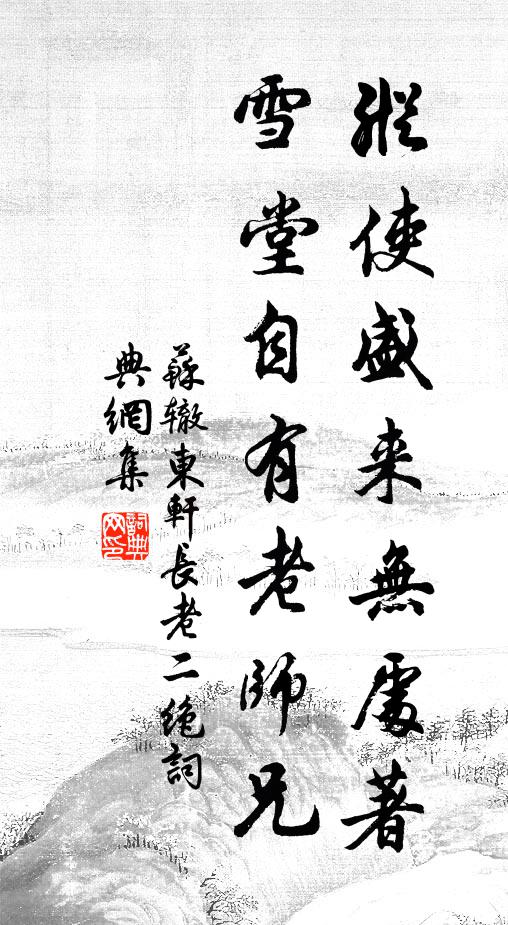 縱使盛来無處著
雪堂自有老師兄
蘇辙東軒長老二绝詞
典網集
詞典